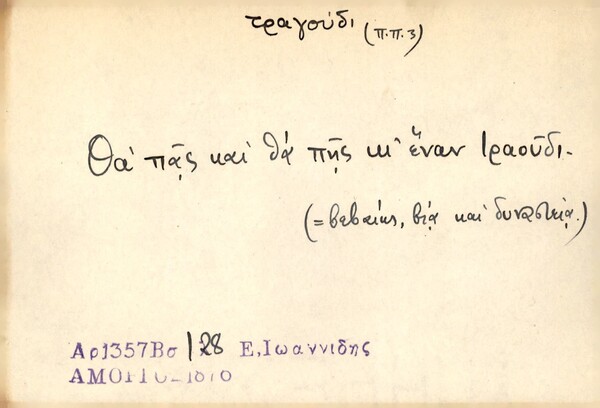 τραγούδι (π.π.3)
Θά πᾷς καί θά πῇς κι' ἕναν τραοῦδι.
(=βεβαίως, βίᾳ καί δυναστείᾳ.)
Αρ1357Βσ/28 Ε,Ιωαννιδης
ΑΜΟΡΓΟ-1876